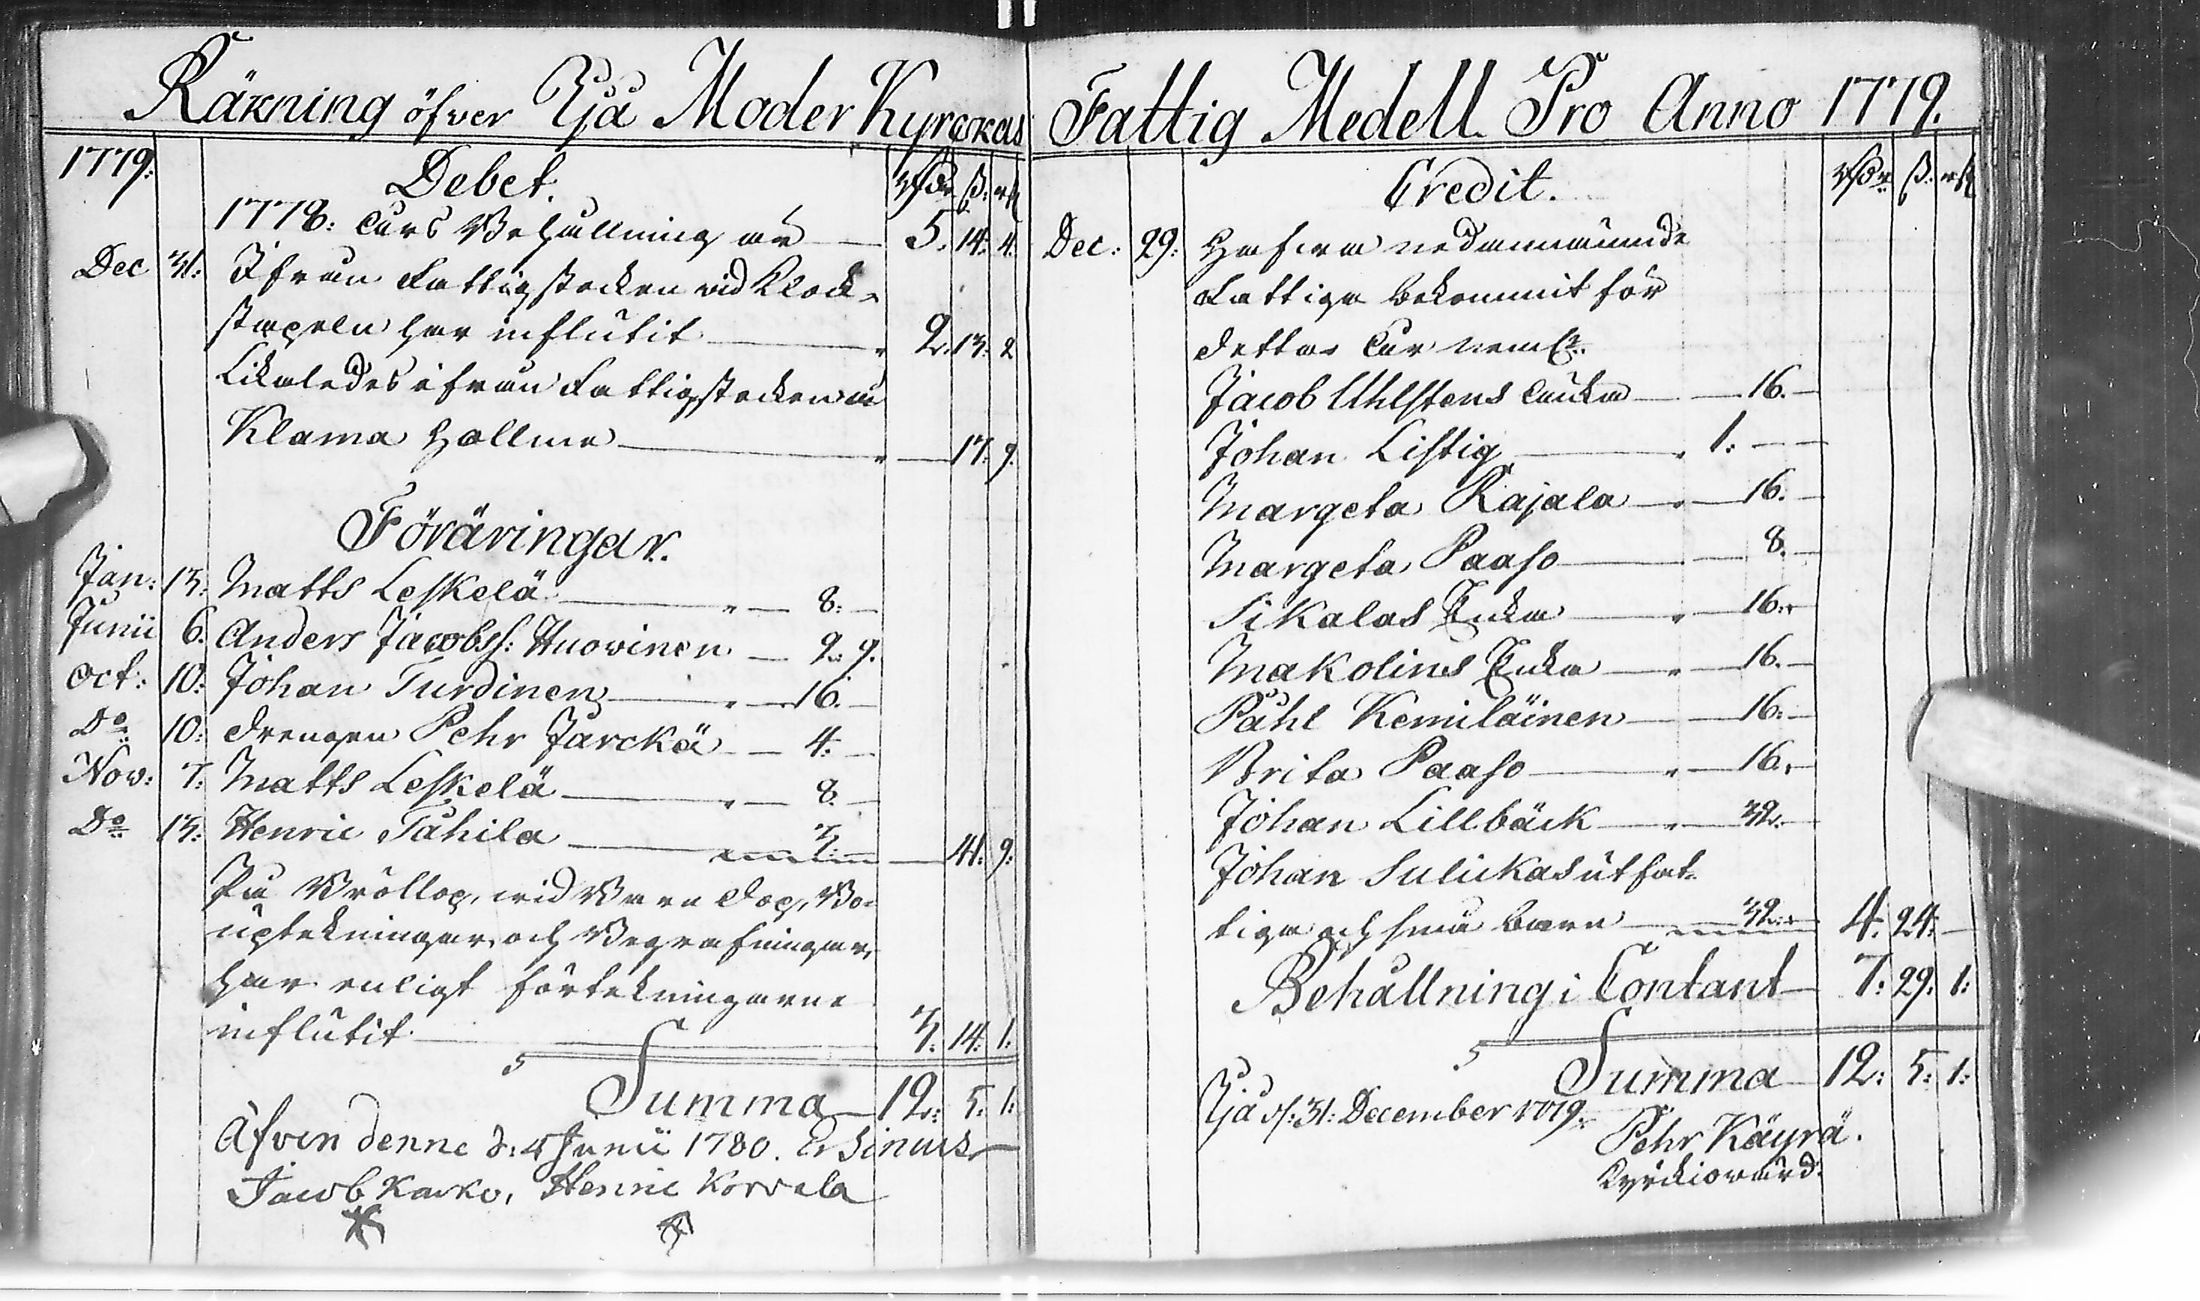 Räkning öfver Ijå Moder Kyrckas
1779:
Debet.
Rdr ß: rst
1778: års Behållning är — 5. 14: 4.
Dec 31: Ifrån Fattigstocken vid Klock-
stapeln har influtit — 2. 13: 2
Likaledes ifrån Fattigstocken på
Klama Hollme — 17. 9.
Föräringar.
Jan: 13: Matts Leskelä — 8. —
Junii 6. Anders Jacobss: Huovinen — 2. 9.
Oct: 10: Johan Turdinen — 16. —
Do 10: Drengen Pehr Jarckä — 4. —
Nov: 7. Matts Leskelä — 8. —
Do 13: Henric Tåhila — 3. — 41. 9.
På Bröllop, vid Barn Dop, Bo-
uptekningar, och Begrafningar,
har enligt förtekningarne
influtit — 3. 14. 1.
Summa — 12. 5. 1.
Äfven denne d: 4 Junii 1780.
Jacob Karko, Henric Korvela
Fattig Medell Pro Anno 1779.
Credit.
Rdr ß: rst
Dec: 29: Hafva nedannämnde
Fattiga bekommit för
detta år neml.
Jacob Uhlstens Enka — 16. —
Johan Listig — 1: — —
Margeta Rajala — 16. —
Margeta Paaso — 8. —
Sikalas Enka — 16. —
Makolins Enka — 16. —
Påhl Kemiläinen — 16. —
Brita Paaso — 16. —
Johan Lillbäck — 32. —
Johan Sulickas utfat-
tiga och små barn — 32. — 4. 24. —
Behållning i Contant — 7. 29. 1:
Summa — 12: 5: 1:
Ijå d: 31: December 1779.
Pehr Käyrä.
Kyrckiovärd.